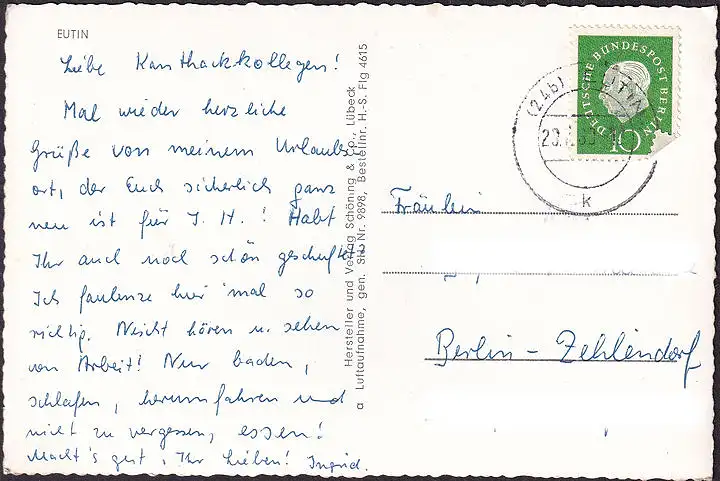 EUTIN
Liebe Kanthackkollegen!
Mal wieder herzliche
Grüße von meinem Urlaubs
ort, der Euch sicherlich ganz
neu ist für I. H.! Habt
Ihr auch noch schön geschuftet?
Ich faulenze hier 'mal so
richtig. Nicht hören u. sehen
von Arbeit! Nur baden,
schlafen, herumfahren und
nicht zu vergessen, essen!
Macht's gut, Ihr Lieben! Ingrid.
Hersteller und Verlag Schöning & Co., Lübeck
a Luftaufnahme, gen. SH Nr. 9898, Bestellnr. H.-S. Flg 4615
DEUTSCHE BUNDESPOST BERLIN
10
(24b)
k
Fräulein
Berlin-Zehlendorf